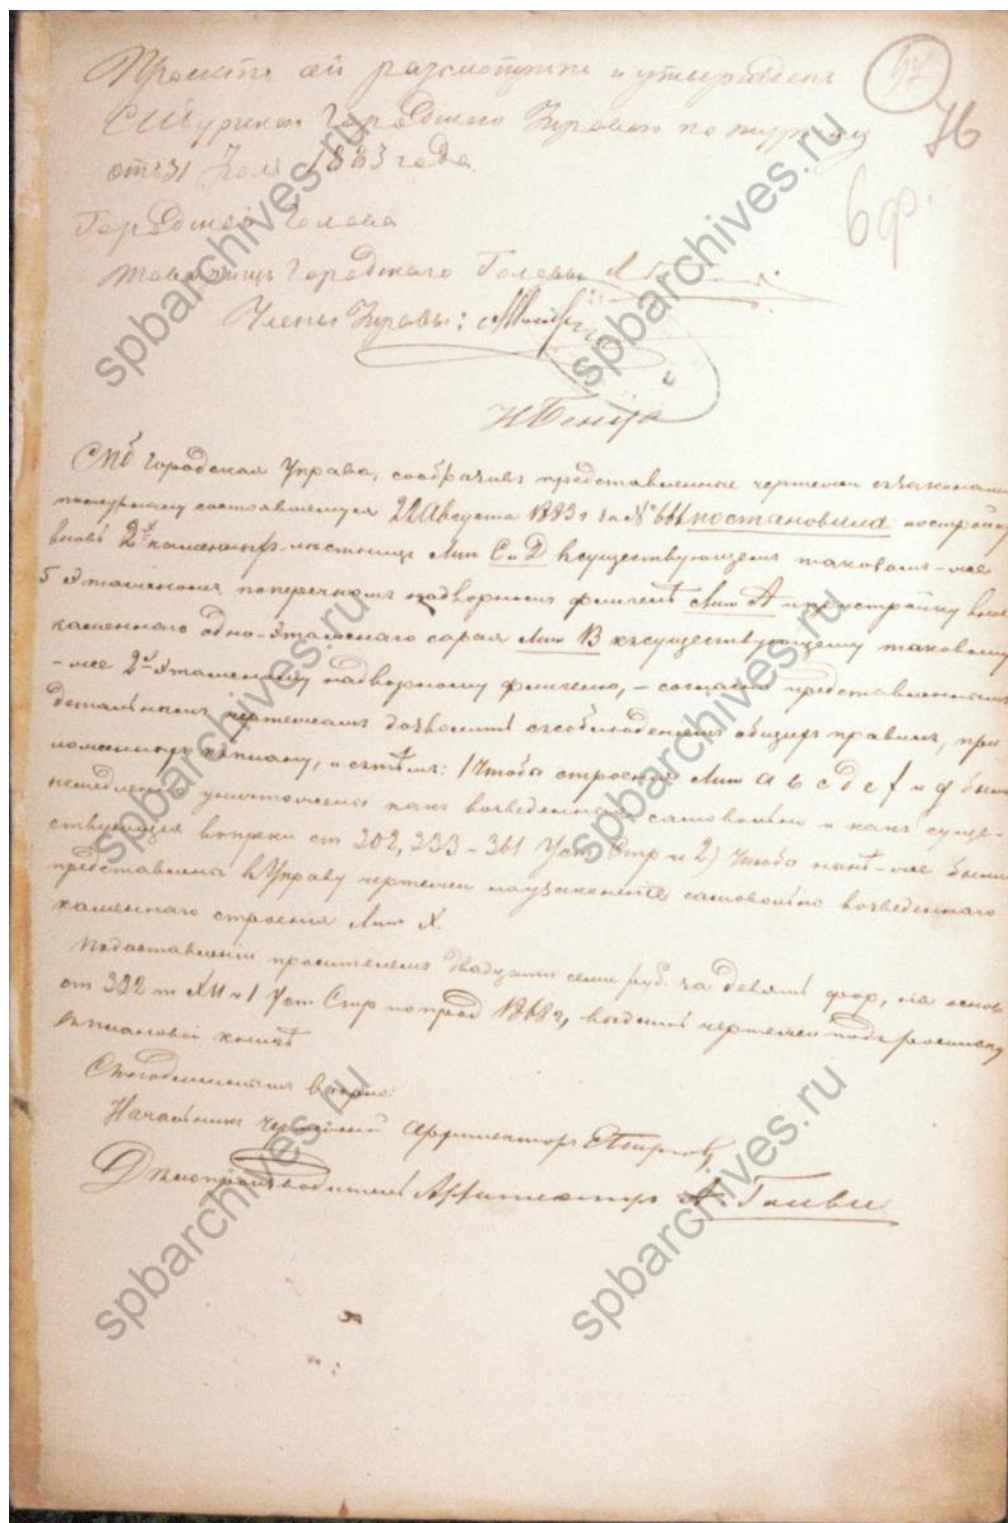 Проектъ сей разсмотрѣнъ и утвержденъ
57
76
СПбургскою Городскою Управою по журналу
отъ 31 1883 года
6 ф.
Городской Голова
Товарищъ Городскаго Головы
Члены Управы:
СПб Городская Управа, сообразивъ представленные чертежи съ законами
по журналу состоявшемуся 22 Августа 1883 г за № постановила построй
вновь 2хъ каменныхъ лѣстницъ Лит С и D въ существующемъ таковомъ-же
5 этажномъ поперечномъ надворномъ флигелѣ Лит А и пристройку вновь
каменнаго одно-этажнаго сарая Лит В къ существующему таковому
-же 2хъ этажному надворному флигелю, - согласно представленнымъ
детальнымъ чертежамъ дозволить съ соблюденіемъ общихъ правилъ, при
ложенныхъ къ плану, и съ тѣмъ: 1 Чтобы строенія Лит a b c d e f и g были
немедленно уничтожены какъ возведенныя самовольно и какъ суще-
ствующія вопреки ст 202, 233 - 361 Уст Стр и 2) Чтобы нынѣ-же были
представлены въ Управу чертежи на узаконеніе самовольно возведеннаго
каменнаго строенія Лит X.
По доставленіи просителемъ двадцати семи руб. за девять фор, на основ
ст 332 т XII ч 1 Уст Стр по прод 1868 г, выдать чертежи подъ росписку
въ плановой книгѣ
Съ подлиннымъ вѣрно:
Начальникъ чертежной Архитекторъ
Дѣлопроизводитель Архитекторъ А.
spbarchives.ru
spbarchives.ru
spbarchives.ru
spbarchives.ru
spbarchives.ru
spbarchives.ru